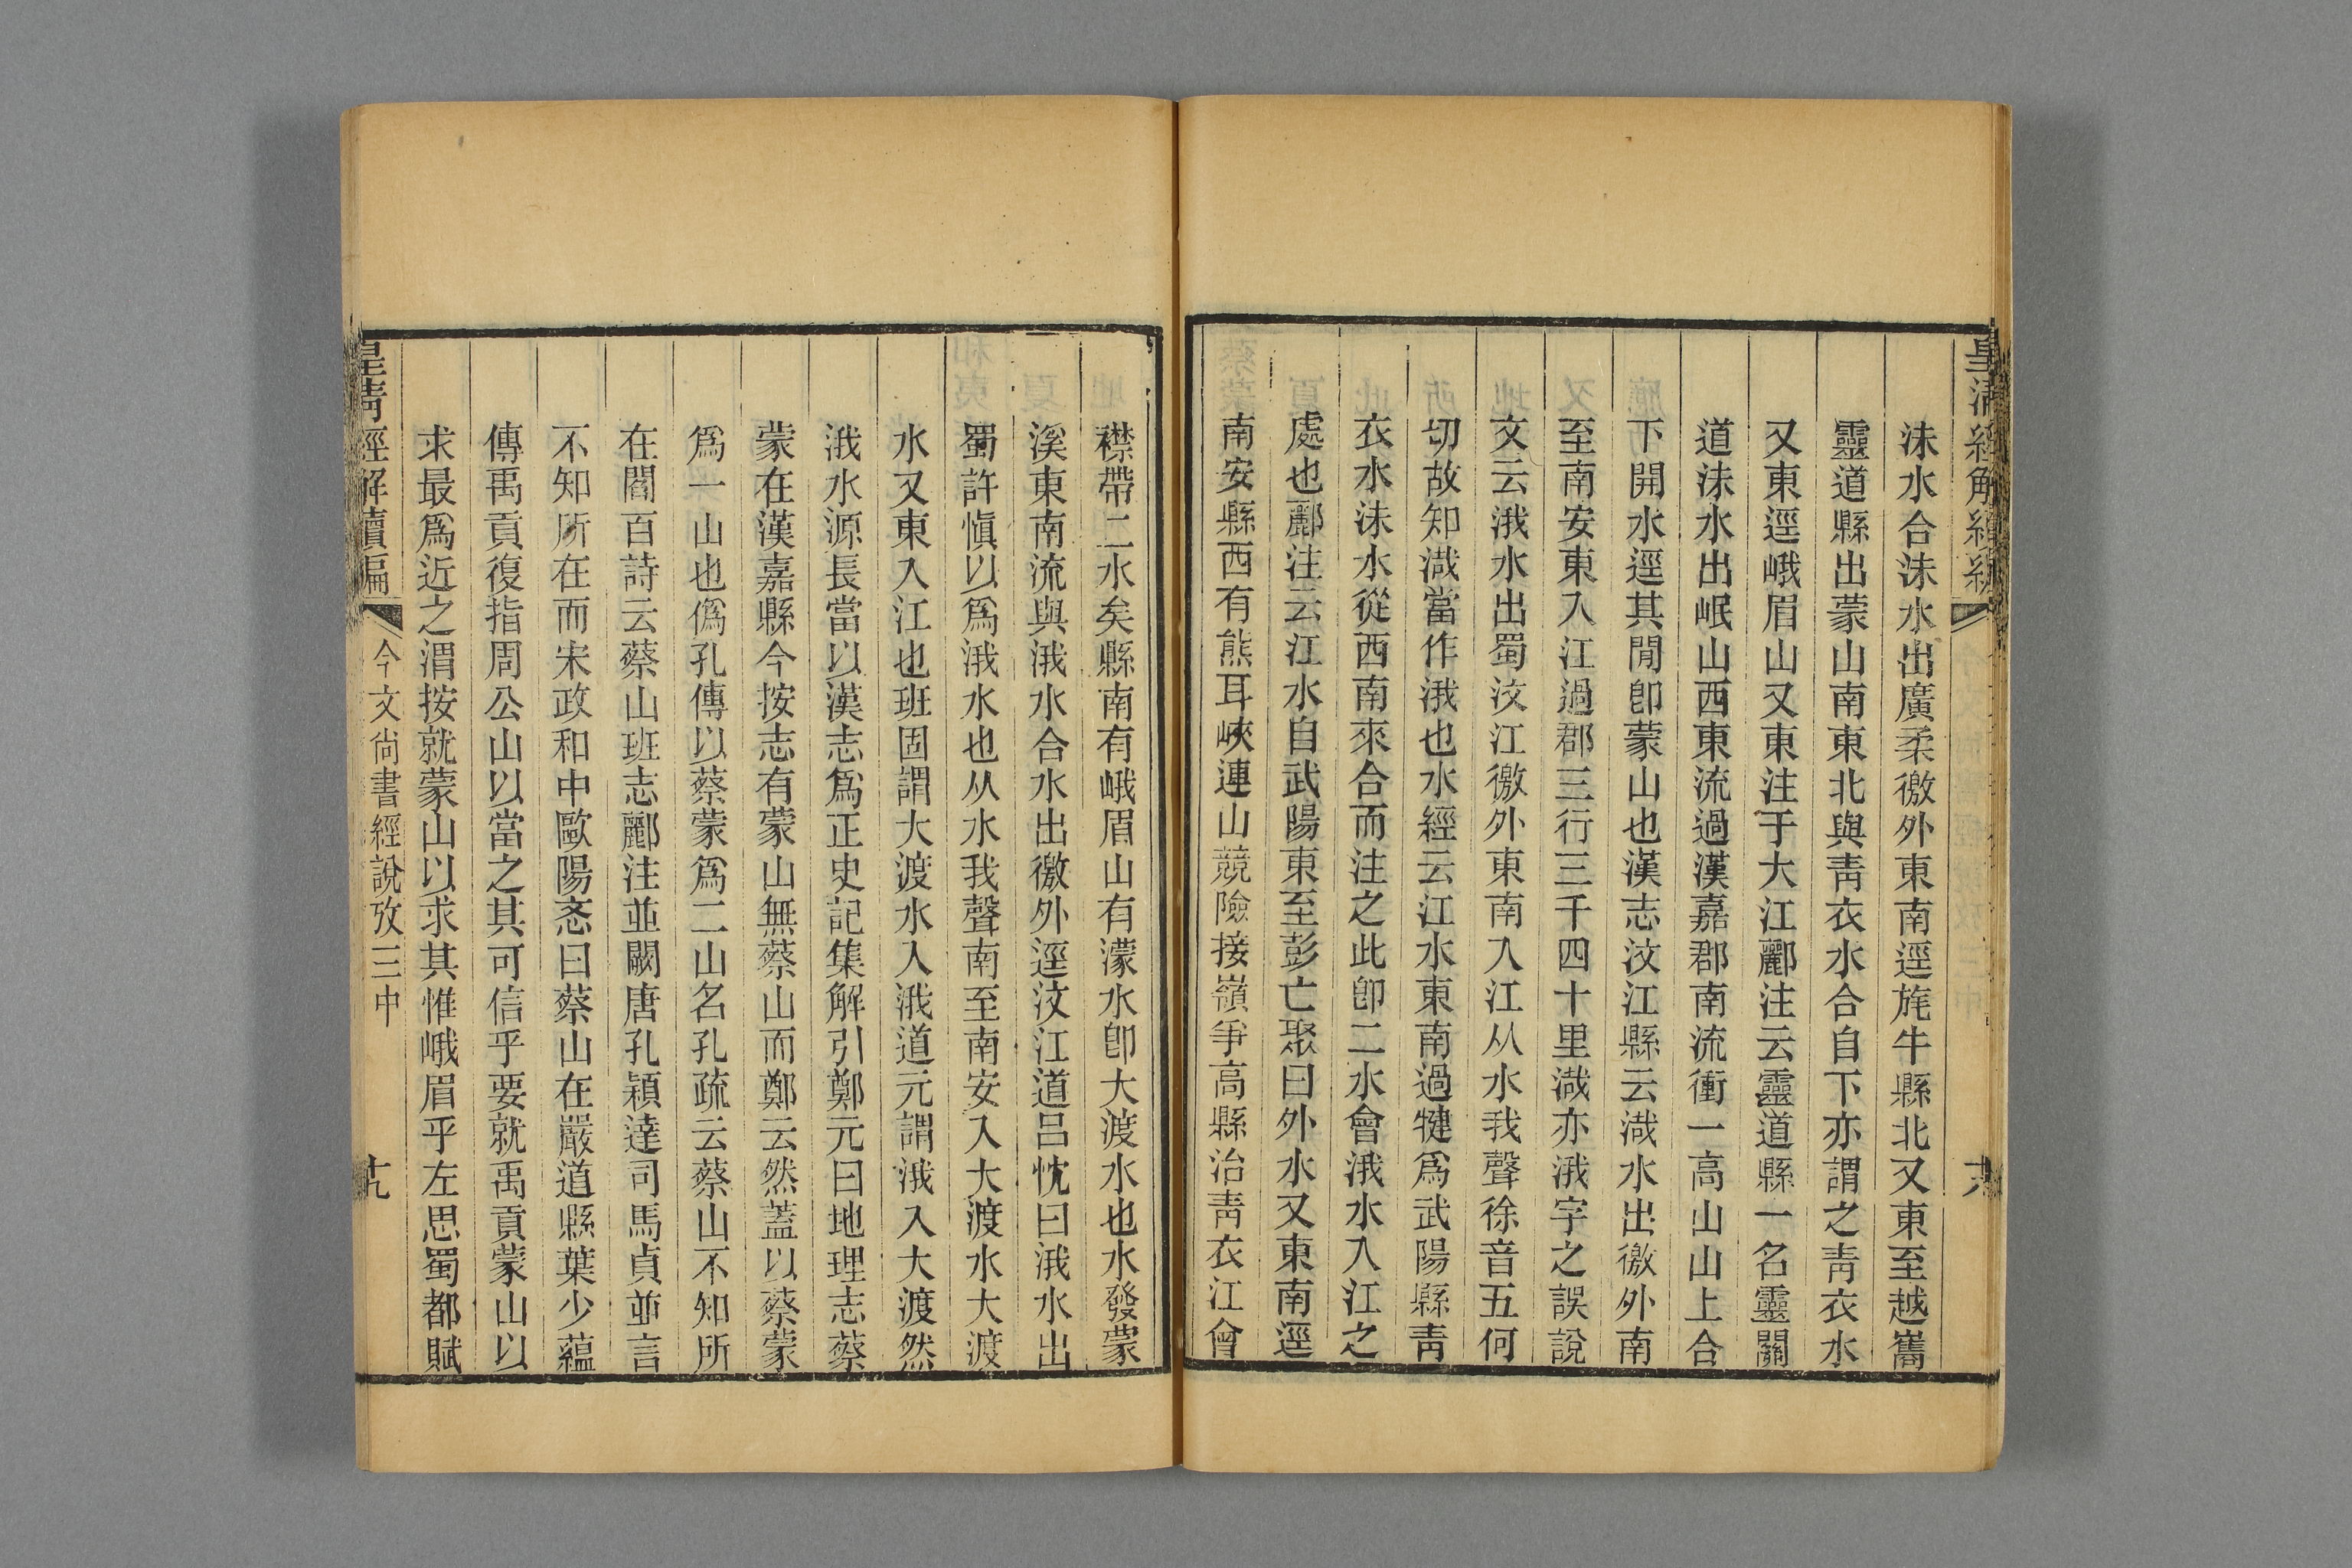 沬水合沬水出廣柔徼外東南逕旄牛縣北又東至越巂
靈道縣出蒙山南東北與靑衣水合自下亦謂之靑衣水
又東逕峨眉山又東注于大江酈注云靈道縣一名靈關
道沬水出岷山西東流過漢嘉郡南流衝一高山山上合
下開水逕其閒卽蒙山也漢志汶江縣云渽水出徼外南
至南安東入江過郡三行三千四十里渽亦涐字之誤說
文云涐水出蜀汶江徼外東南入江从水我聲徐音五何
切故知渽當作涐也水經云江水東南過犍爲武陽縣靑
衣水沬水從西南來合而注之此卽二水會涐水入江之
處也酈注云江水自武陽東至彭亡聚曰外水又東南逕
南安縣西有熊耳峽連山競險接嶺爭高縣治靑衣江會
襟帶二水矣縣南有峨眉山有濛水卽大渡水也水發蒙
溪東南流與涐水合水出徼外逕汶江道呂忱曰涐水出
蜀許愼以爲涐水也从水我聲南至南安入大渡水大渡
水又東入江也班固謂大渡水入涐道元謂涐入大渡然
涐水源長當以漢志爲正史記集解引鄭元曰地理志蔡
蒙在漢嘉縣今按志有蒙山無蔡山而鄭云然蓋以蔡蒙
爲一山也僞孔傳以蔡蒙爲二山名孔疏云蔡山不知所
在閻百詩云蔡山班志酈注並闕唐孔穎達司馬貞並言
不知所在而宋政和中歐陽忞曰蔡山在嚴道縣葉少蘊
傳禹貢復指周公山以當之其可信乎要就禹貢蒙山以
求最爲近之渭按就蒙山以求其惟峨眉乎左思蜀都賦
皇淸經解續編 今文尙書經說攷三中 十九